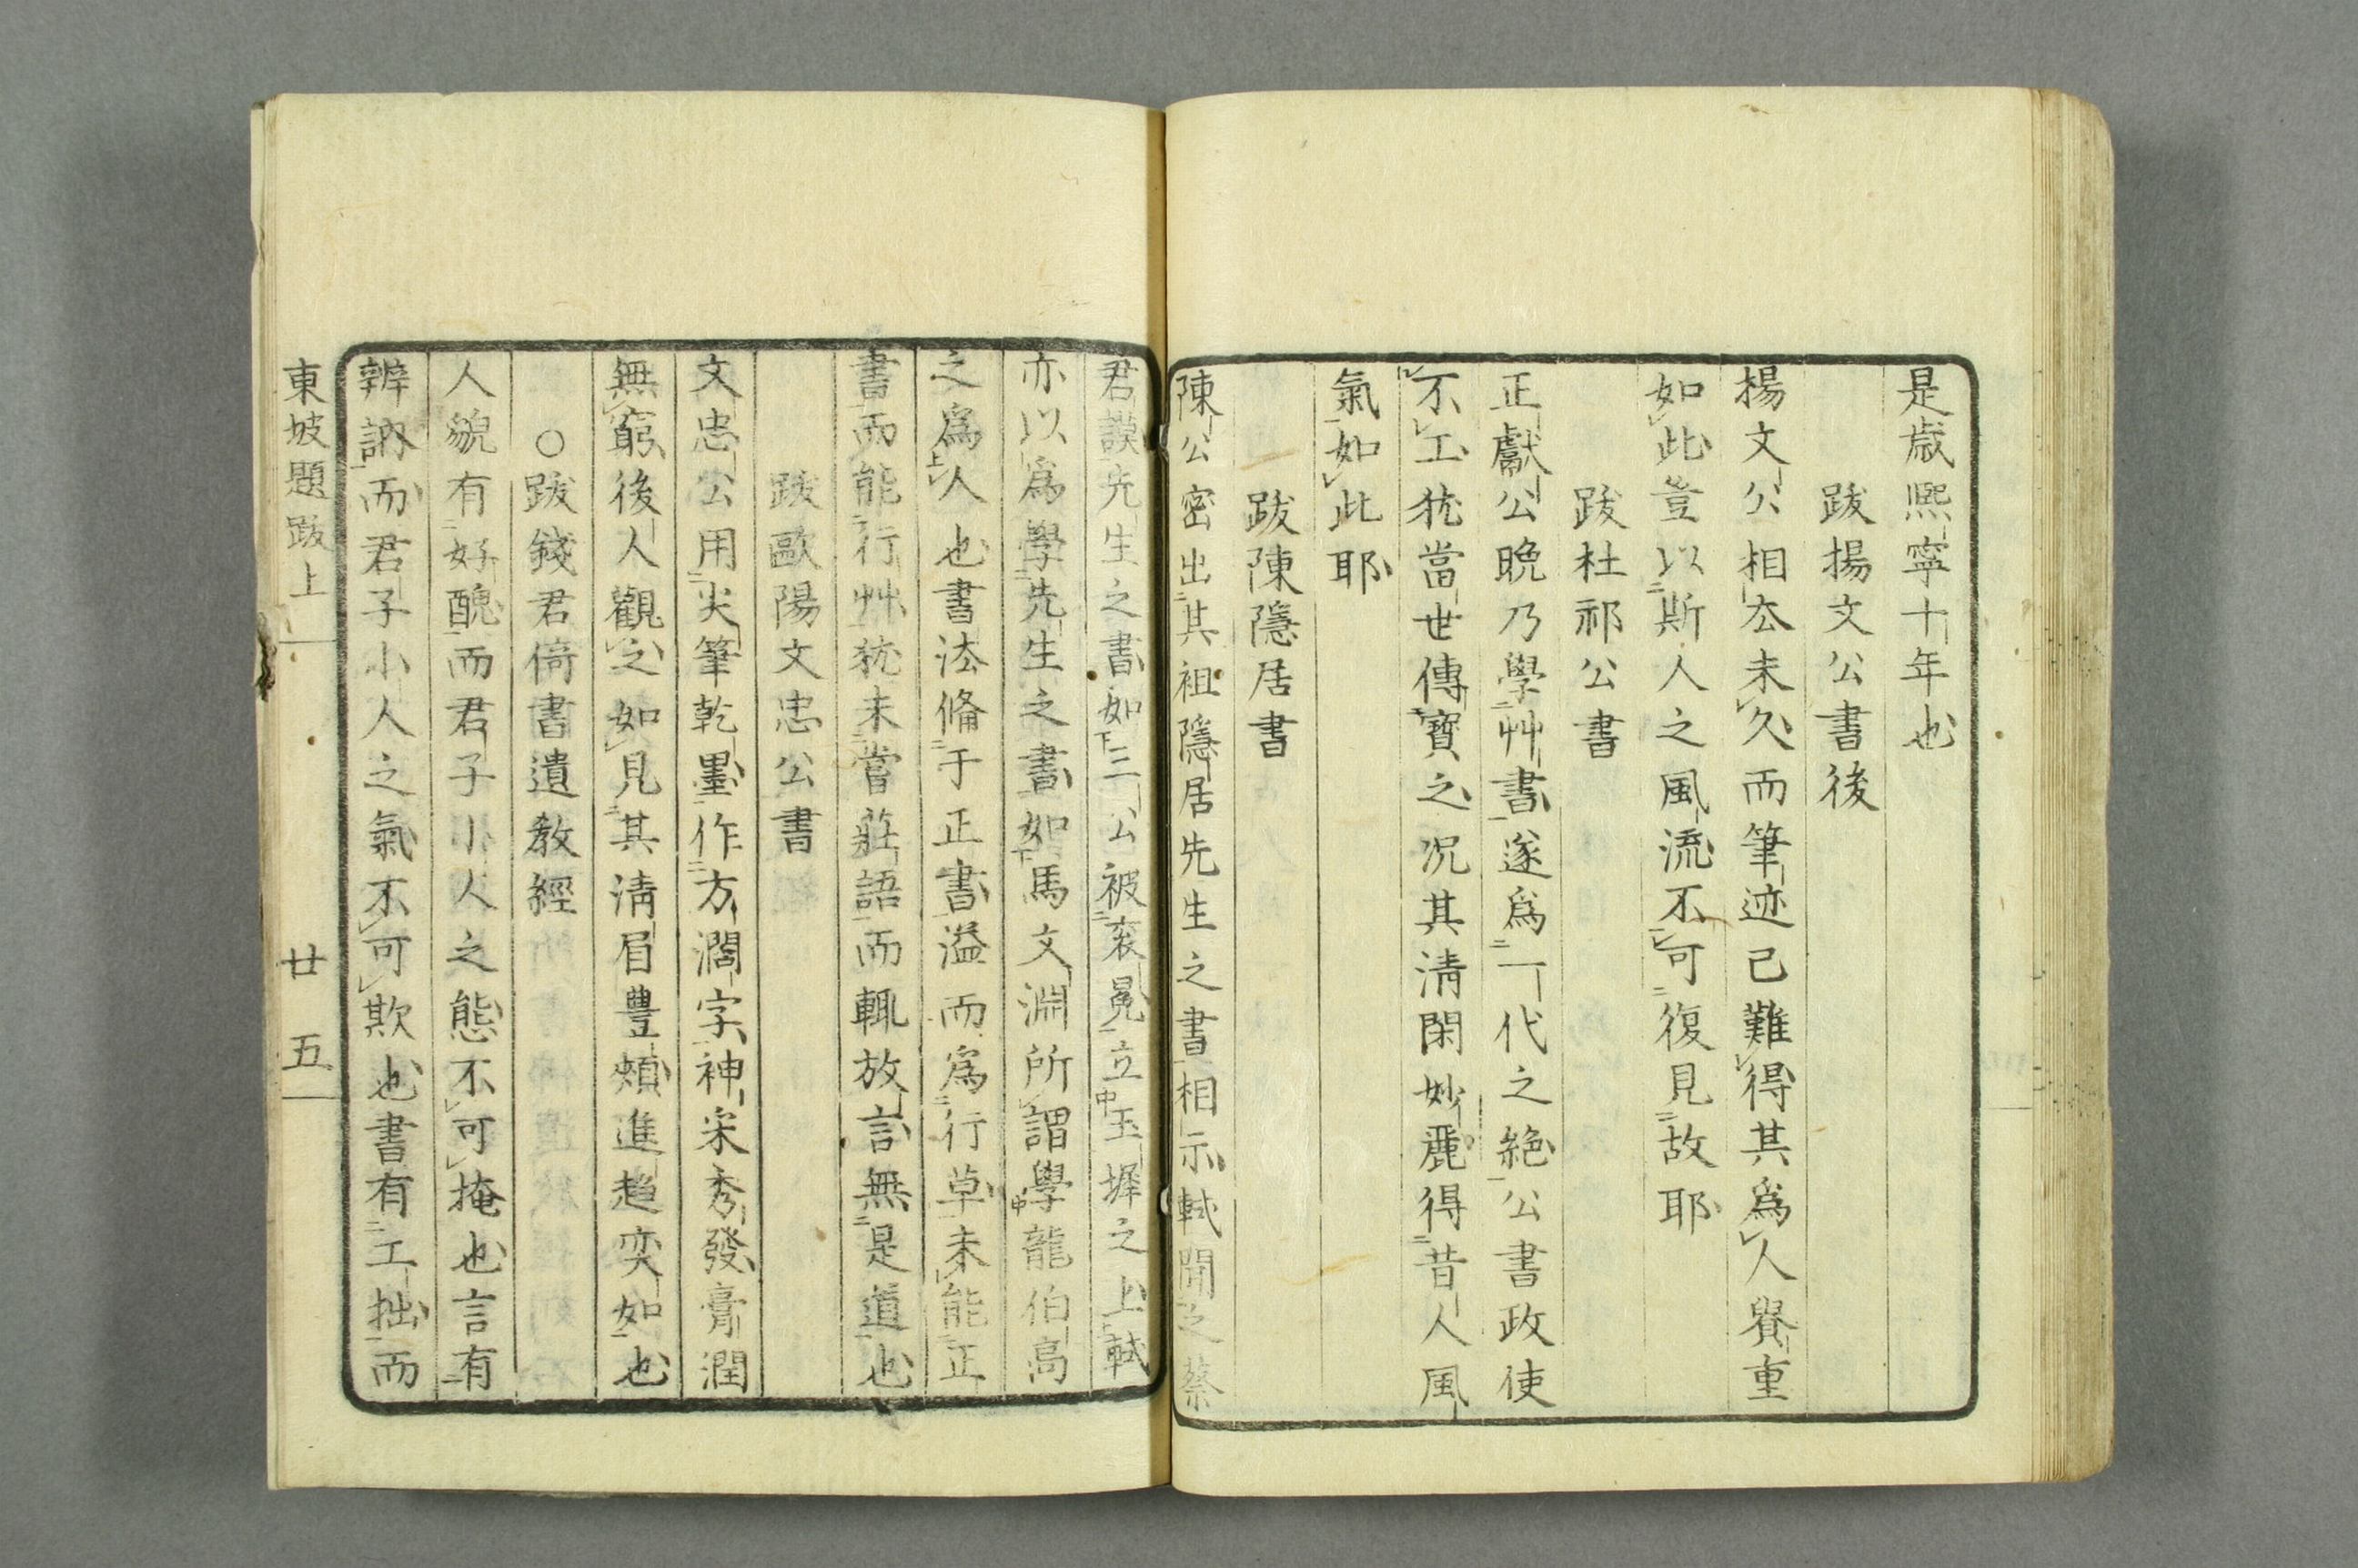 是歳熈寧十年也
跋揚文公書後
楊文公相厺未久而筆迹已難得其為人賢重
如此豈以斯人之風流不可復見故耶
跋杜祁公書
正獻公晩乃學艸書遂為一代之絶公書政使
不工犹當世傳寳之况其清閑妙麗得昔人風
氣如此耶
跋陳隱居書
陳公密出其祖隱居先生之書相示軾聞之蔡
君謨先生之書如三公被衮冕立玉墀之上軾
亦以為學先生之書如馬文淵所謂學龍伯高
之為人也書法偹于正書溢而為行草未能正
書而能行艸犹未嘗莊語而輒放言無是道也
跋歐陽文忠公書
文忠公用尖筆乾墨作方濶字神采秀發膏潤
無窮後人觀之如見其清眉豊頰進趨奕如也
○跋錢君倚書遺教經
人貌有好醜而君子小人之態不可掩也言有
辨訥而君子小人之氣不可欺也書有工拙而
東坡題跋上
廿五